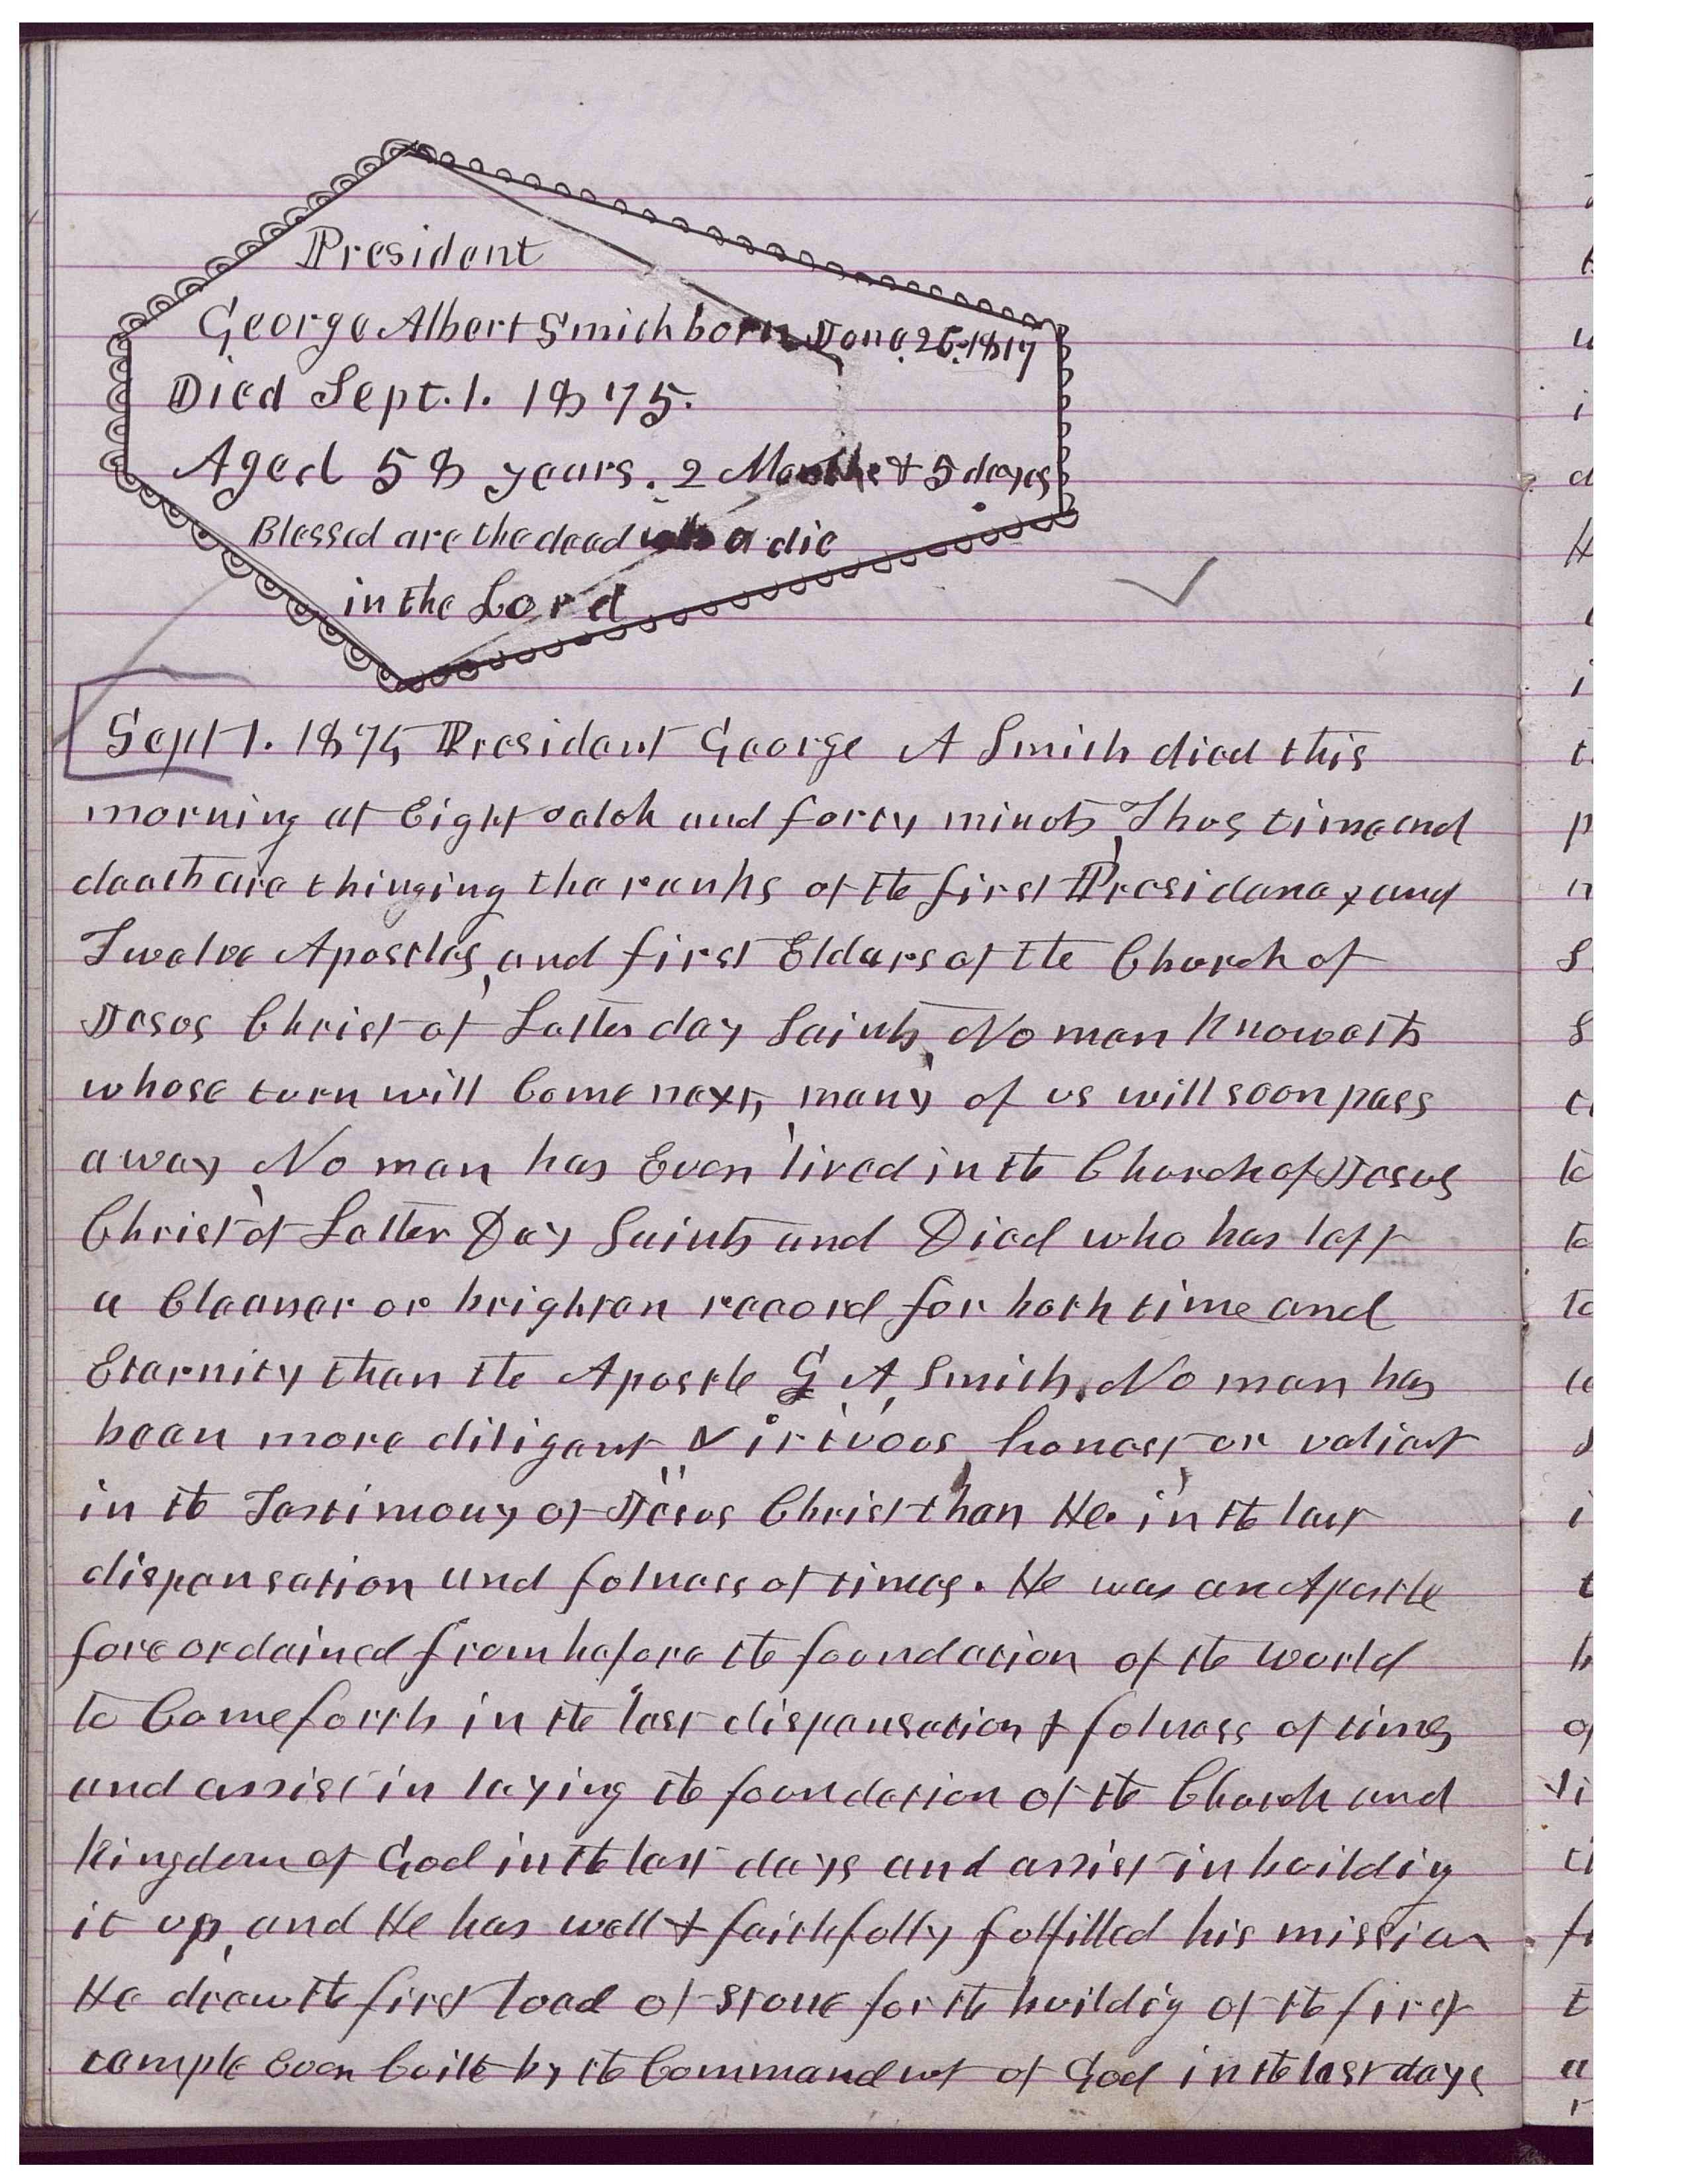 President
George Albert Smith born June. 26. 1817
Died Sept. 1. 1875.
Aged 58 years. 2 Months & 5 days
Blessed are the dead who die
in the Lord
Sept 1. 1875 President George A Smith died this
morning at Eight oclok and forty minuts, Thus time and
death are thinging the ranks of the first Presidency and
Twelve Apostles, and first Elders of the Church of
Jesus Christ of Latter day Saints, No man knoweth
whose turn will Come next, many of us will soon pass
away, No man has Ever lived in the Church of Jesus
Christ of Latter Day Saints and Died who has left
a Cleaner or brighter record for both time and
Eternity than the Apostle G A, Smith. No man has
been more diligent virtuous, honest, or valiant
in the Testimony of Jesus Christ than He in the last
dispensation and fulness of times. He was an Apostle
foreordained from before the foundation of the world
to Come forth in the last dispensation & fulness of times
and assist in laying the foundation of the Church and
Kingdom of God in the last days and assist in buildig
it up, and He has well & faithfully fulfilled his mission
He drew the first load of stone for the buildig of the first
temple Ever built by the Commandmet of God in the last days